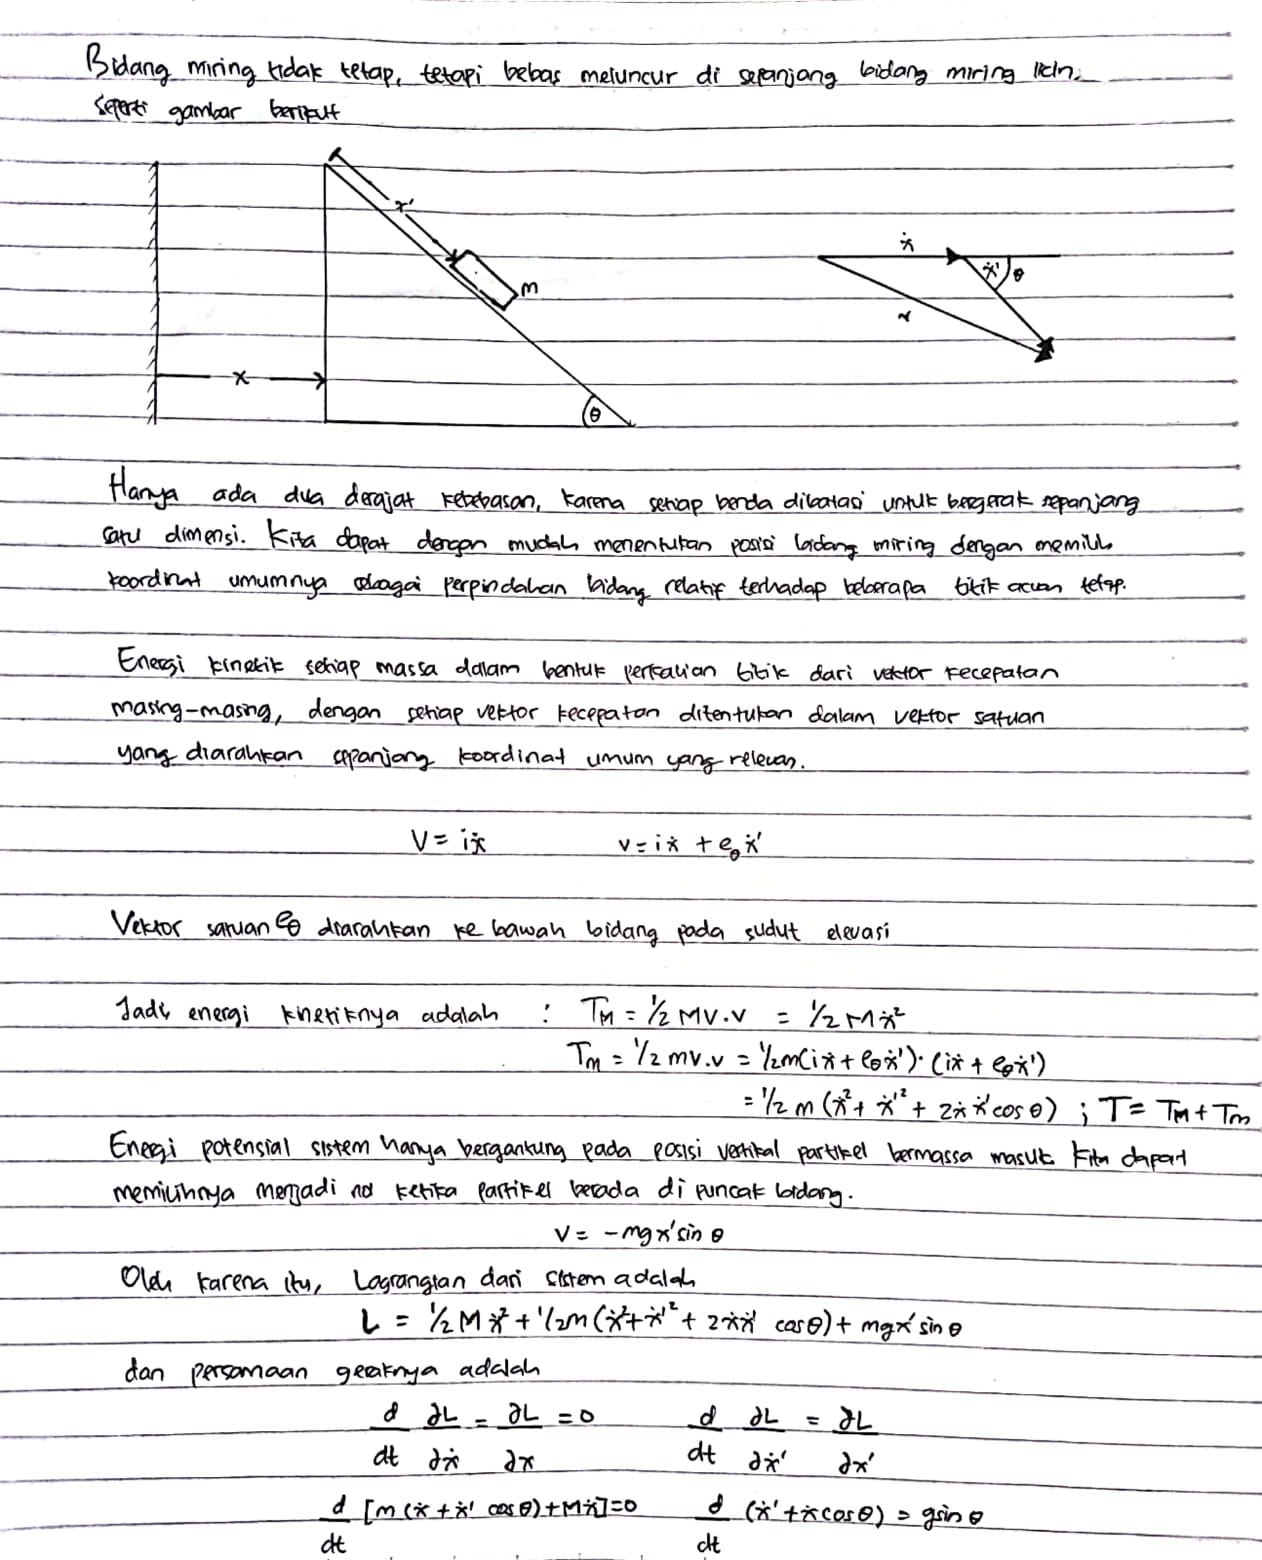 Bidang miring tidak tetap, tetapi bebas meluncur di sepanjang bidang miring licin.
Seperti gambar berikut
x'
m
x
θ
ẋ
ẋ'
θ
v
Hanya ada dua derajat kebebasan, karena setiap benda dibatasi untuk bergerak sepanjang
satu dimensi. Kita dapat dengan mudah menentukan posisi bidang miring dengan memilih
koordinat umumnya sebagai perpindahan bidang relatif terhadap beberapa titik acuan tetap.
Energi kinetik setiap massa dalam bentuk perkalian titik dari vektor kecepatan
masing-masing, dengan setiap vektor kecepatan ditentukan dalam vektor satuan
yang diarahkan sepanjang koordinat umum yang relevan.
V = iẋ v = iẋ + e_θ ẋ'
Vektor satuan e_θ diarahkan ke bawah bidang pada sudut elevasi
Jadi, energi kinetiknya adalah : T_M = 1/2 MV.V = 1/2 Mẋ²
T_m = 1/2 mv.v = 1/2m(iẋ + e_θẋ')·(iẋ + e_θẋ')
= 1/2 m (ẋ² + ẋ'² + 2ẋẋ' cos θ) ; T = T_M + T_m
Energi potensial sistem hanya bergantung pada posisi vertikal partikel bermassa kita dapat
memilihnya menjadi nol ketika partikel berada di puncak bidang.
V = -mgx' sin θ
Oleh karena itu, Lagrangian dari sistem adalah
L = 1/2 Mẋ² + 1/2m (ẋ² + ẋ'² + 2ẋẋ' cos θ) + mgx' sin θ
dan persamaan geraknya adalah
d/dt ∂L/∂ẋ = ∂L/∂x = 0 d/dt ∂L/∂ẋ' = ∂L/∂x'
d/dt [m(ẋ + ẋ' cos θ) + Mẋ] = 0 d/dt (ẋ' + ẋ cos θ) = g sin θ